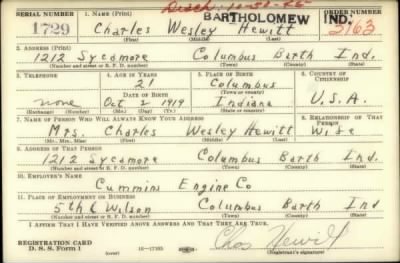 Disch. 10-30-45
BARTHOLOMEW IND.
SERIAL NUMBER 1. NAME (Print) ORDER NUMBER
1729 Charles Wesley Hewitt 2163
(First) (Middle) (Last)
2. ADDRESS (Print)
1212 Sycamore Columbus Barth Ind.
(Number and street or R. F. D. number) (Town) (County) (State)
3. TELEPHONE 4. AGE IN YEARS 5. PLACE OF BIRTH 6. COUNTRY OF CITIZENSHIP
21 Columbus
DATE OF BIRTH (Town or county)
none Oct 2 1919 Indiana U.S.A.
(Exchange) (Number) (Mo.) (Day) (Yr.) (State or country)
7. NAME OF PERSON WHO WILL ALWAYS KNOW YOUR ADDRESS 8. RELATIONSHIP OF THAT PERSON
Mrs. Charles Wesley Hewitt Wife
(Mr., Mrs., Miss) (First) (Middle) (Last)
9. ADDRESS OF THAT PERSON
1212 Sycamore Columbus Barth Ind.
(Number and street or R. F. D. number) (Town) (County) (State)
10. EMPLOYER'S NAME
Cummins Engine Co
11. PLACE OF EMPLOYMENT OR BUSINESS
5th & Wilson Columbus Barth Ind
(Number and street or R. F. D. number) (Town) (County) (State)
I AFFIRM THAT I HAVE VERIFIED ABOVE ANSWERS AND THAT THEY ARE TRUE.
REGISTRATION CARD
D. S. S. Form 1 (over) 16-17105 Chas Hewitt
(Registrant's signature)